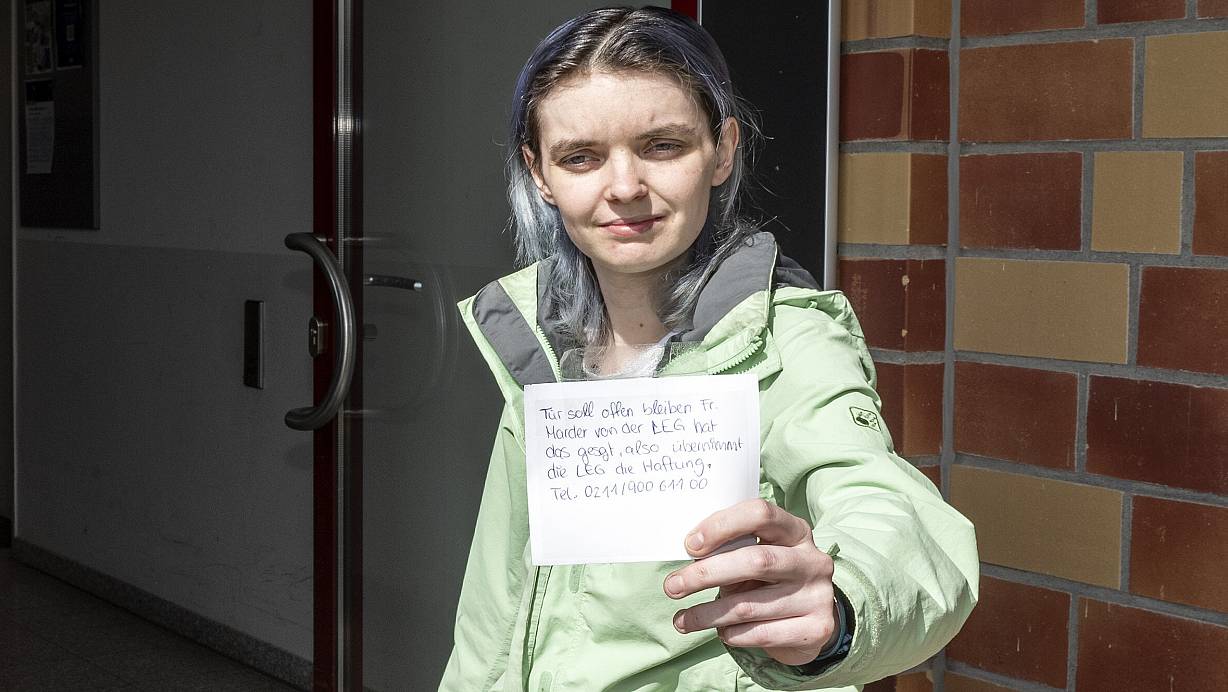 Tür soll offen bleiben Fr.
Marder von der LEG hat
das gesgt, also übernimmt
die LEG die Haftung.
Tel. 0211/900 611 00